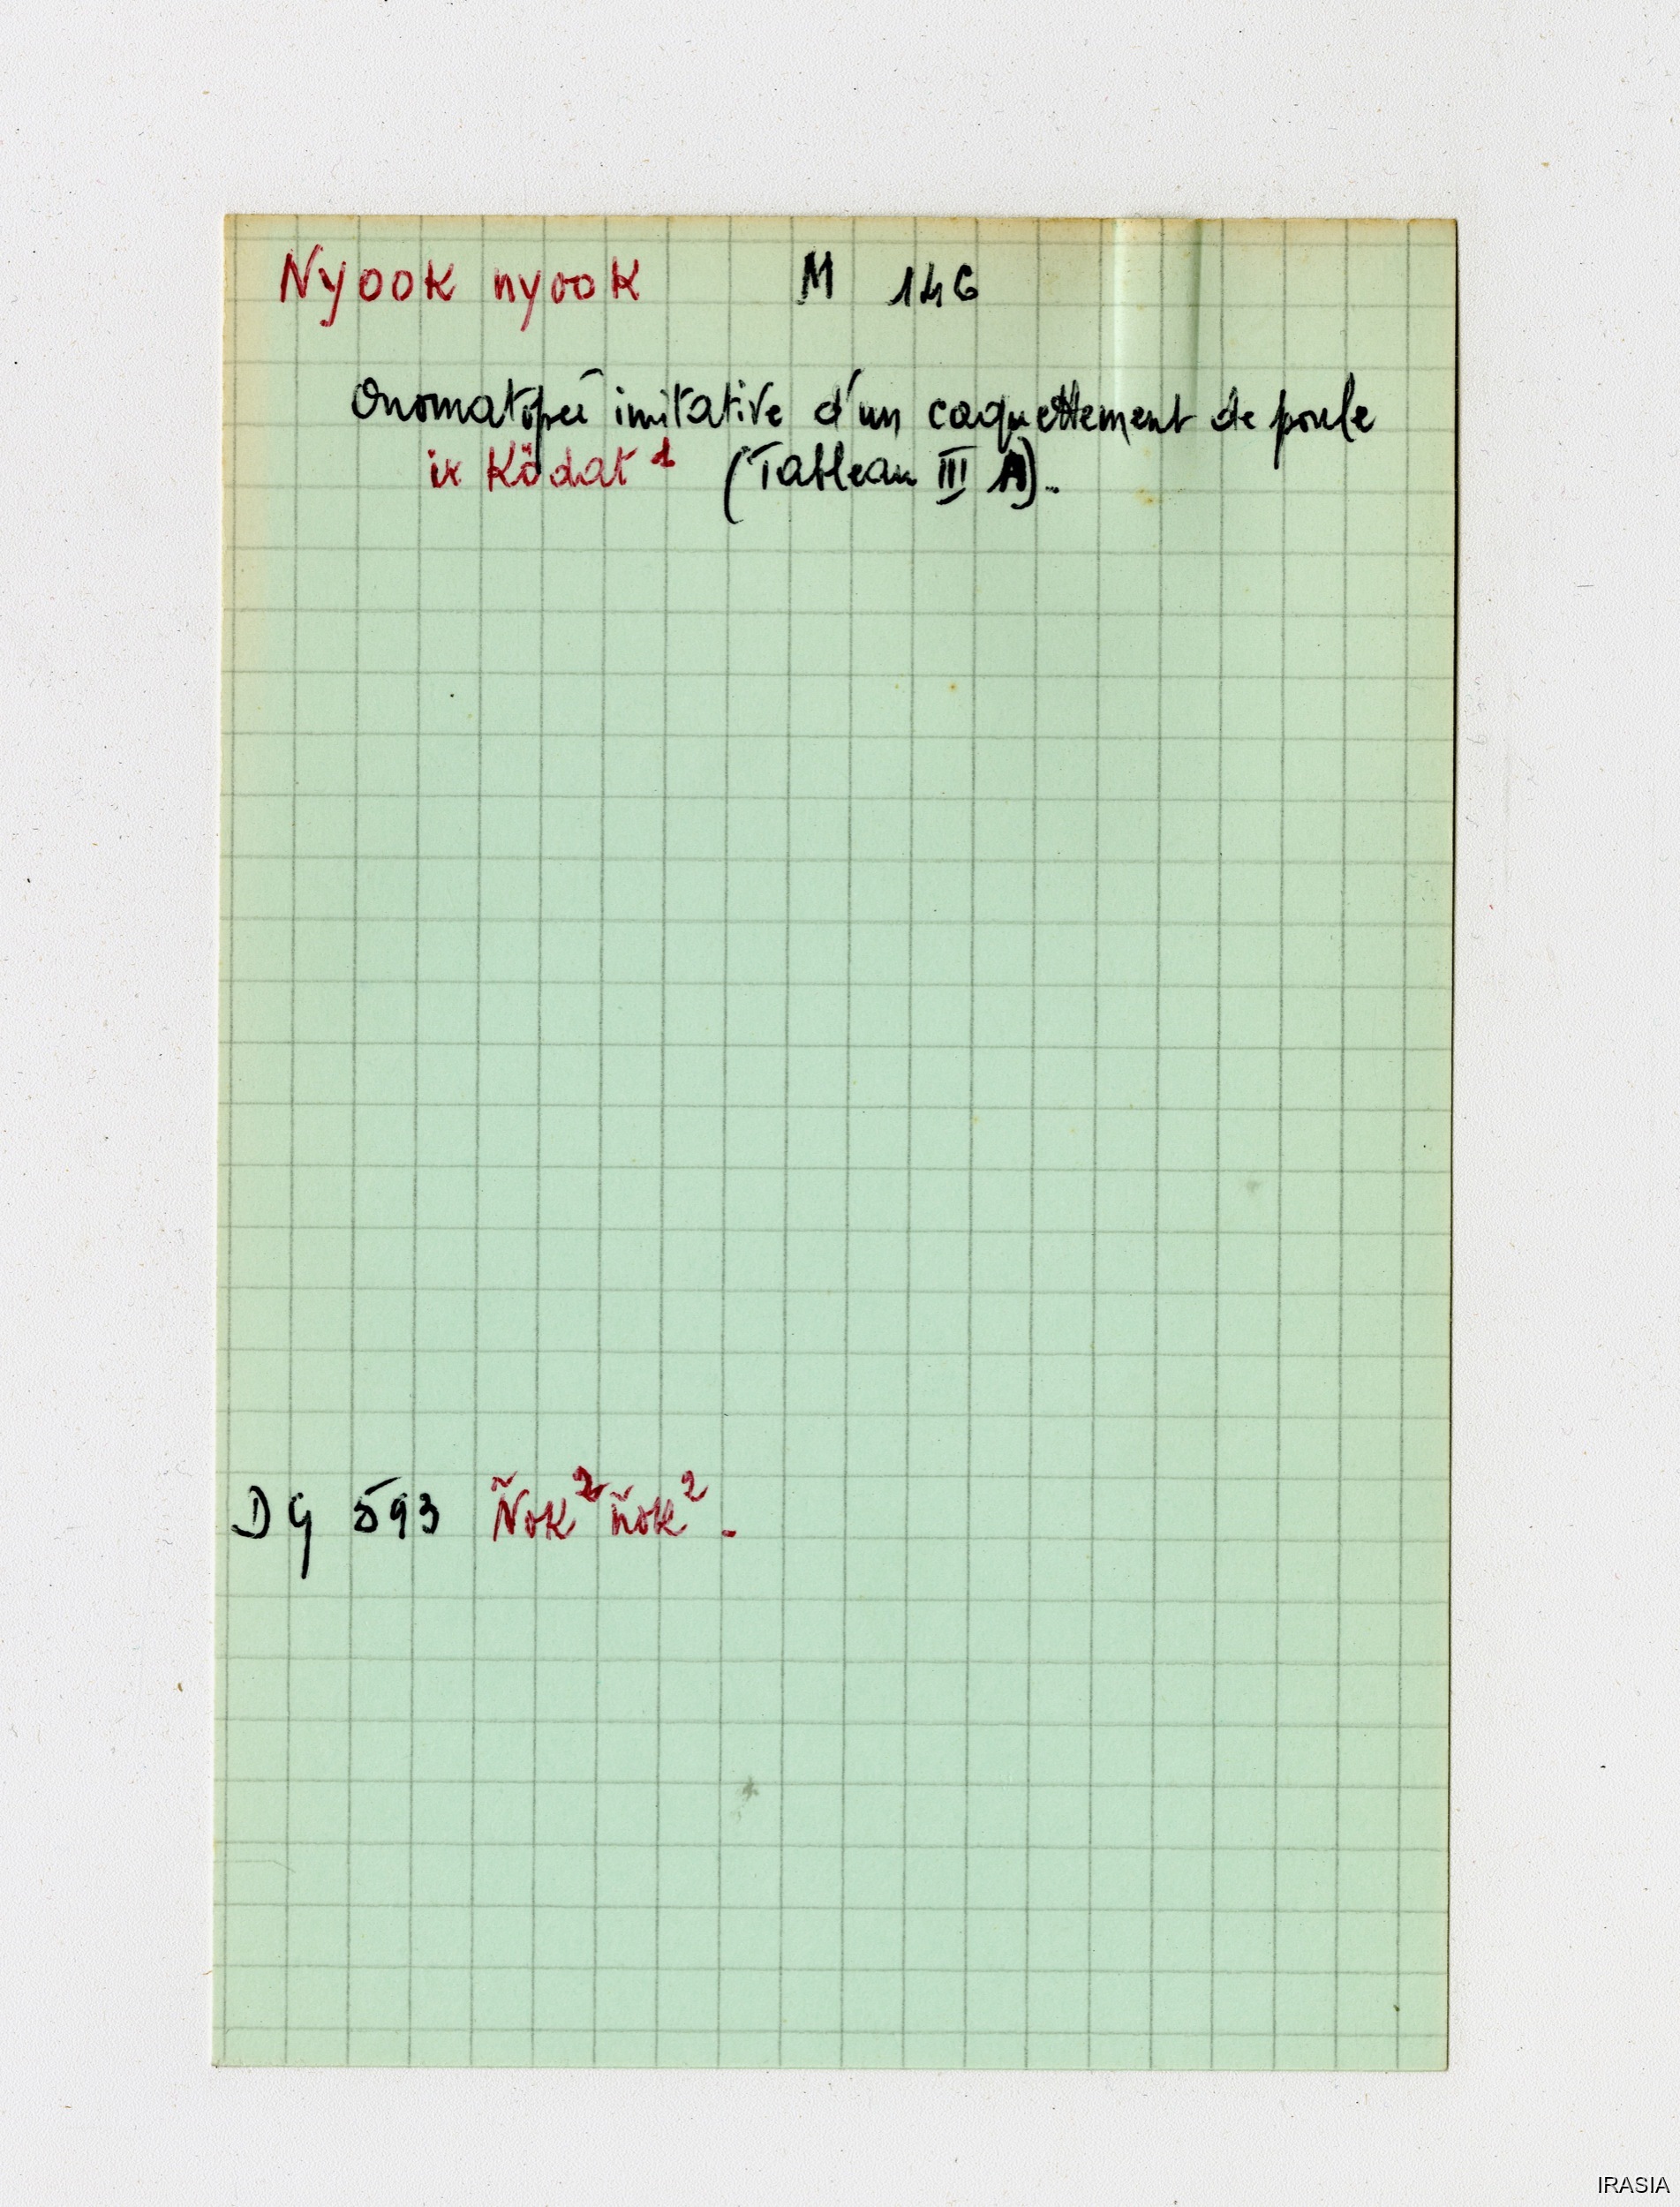 Nyook nyook M 146
Onomatopeé imitative d'un caquettement de poule
ix Ködat 1 (Tableau III A).
DG 593 Ñok² ñok².
IRASIA